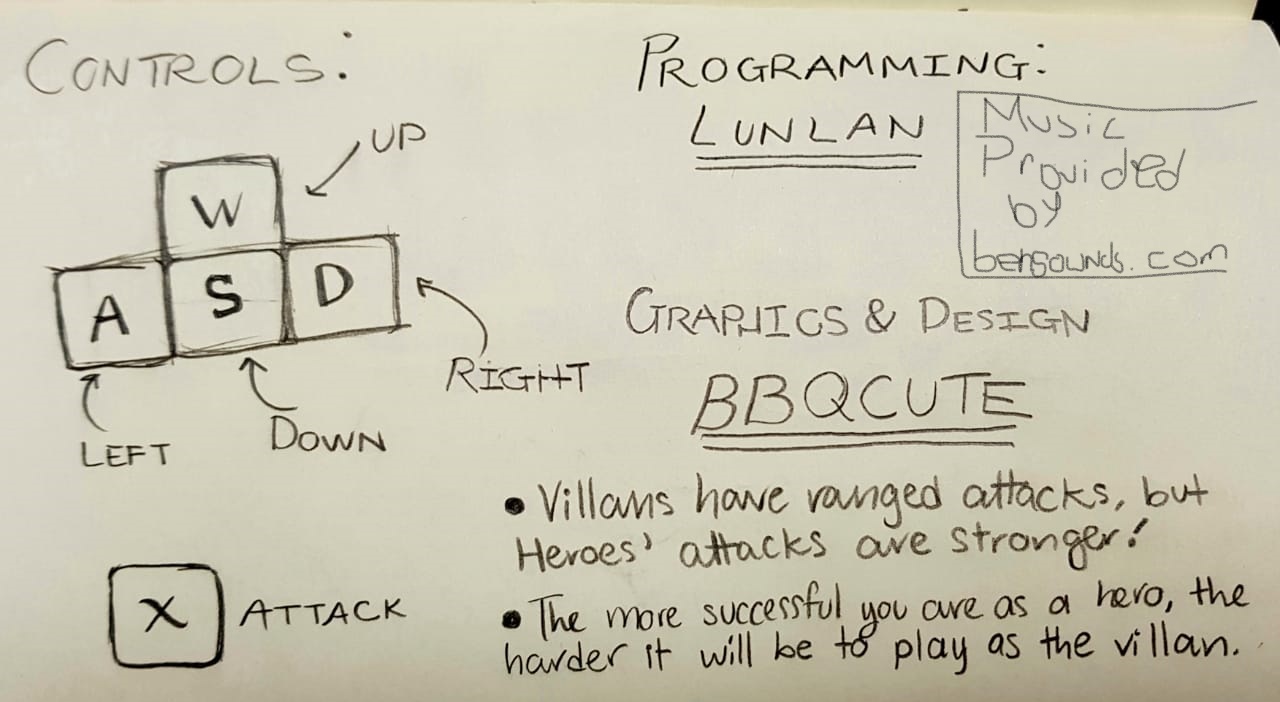 CONTROLS:
UP
W
A S D
LEFT
DOWN
RIGHT
X ATTACK
PROGRAMMING:
LUNLAN
Music
Provided
by
bensounds.com
GRAPHICS & DESIGN
BBQCUTE
• Villans have ranged attacks, but
Heroes' attacks are stronger!
• The more successful you are as a hero, the
harder it will be to play as the villan.